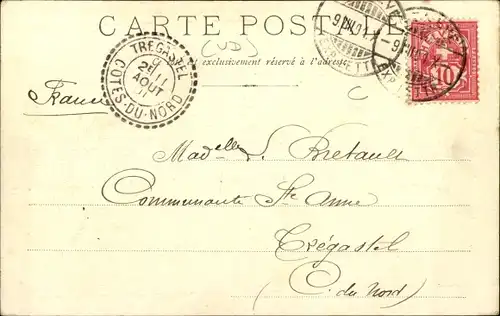 CARTE POSTALE
exclusivement réservé à l'adresse
TREGASTEL
2E
11
AOUT
COTES-DU-NORD
10
France
Madelles Bretault
Communauté Ste Anne
Trégastel
C. du Nord)